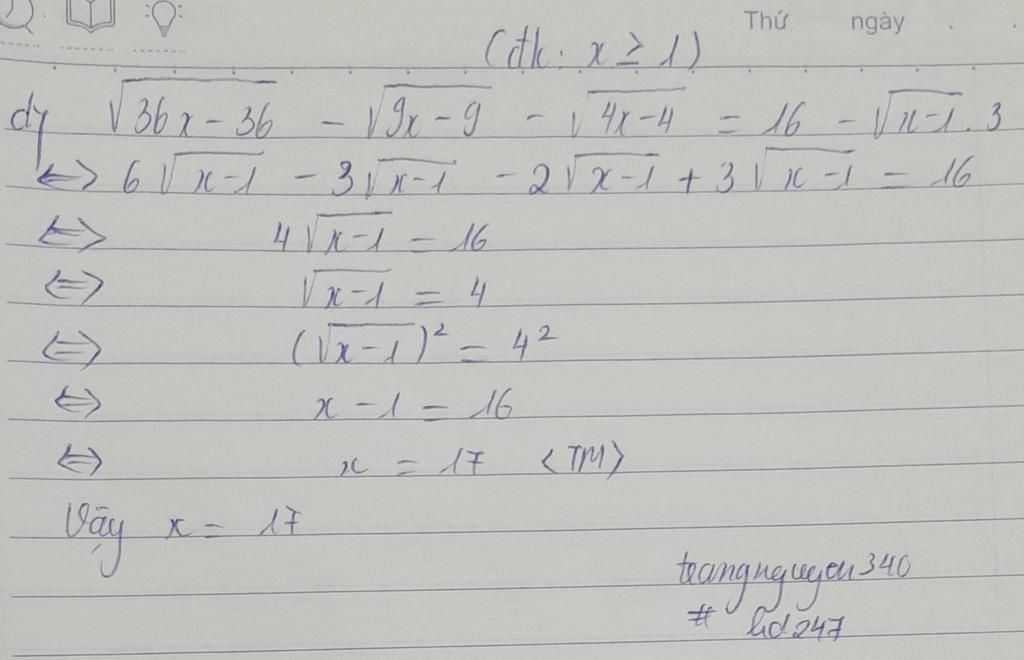 Thứ ngày
(đk: x ≥ 1)
d) √(36x - 36) - √(9x - 9) - √(4x - 4) = 16 - √(x - 1) . 3
⇔ 6√(x - 1) - 3√(x - 1) - 2√(x - 1) + 3√(x - 1) = 16
⇔ 4√(x - 1) = 16
⇔ √(x - 1) = 4
⇔ (√(x - 1))² = 4²
⇔ x - 1 = 16
⇔ x = 17 <TM>
Vậy x = 17
trangnguyen340
# hd247